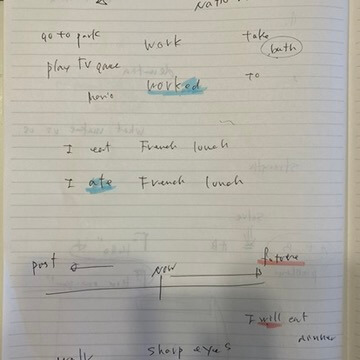 go to park work take
bath
play TV game worked to
I eat French lunch
I ate French lunch
past now future
I will eat
dinner
walk sharp eyes